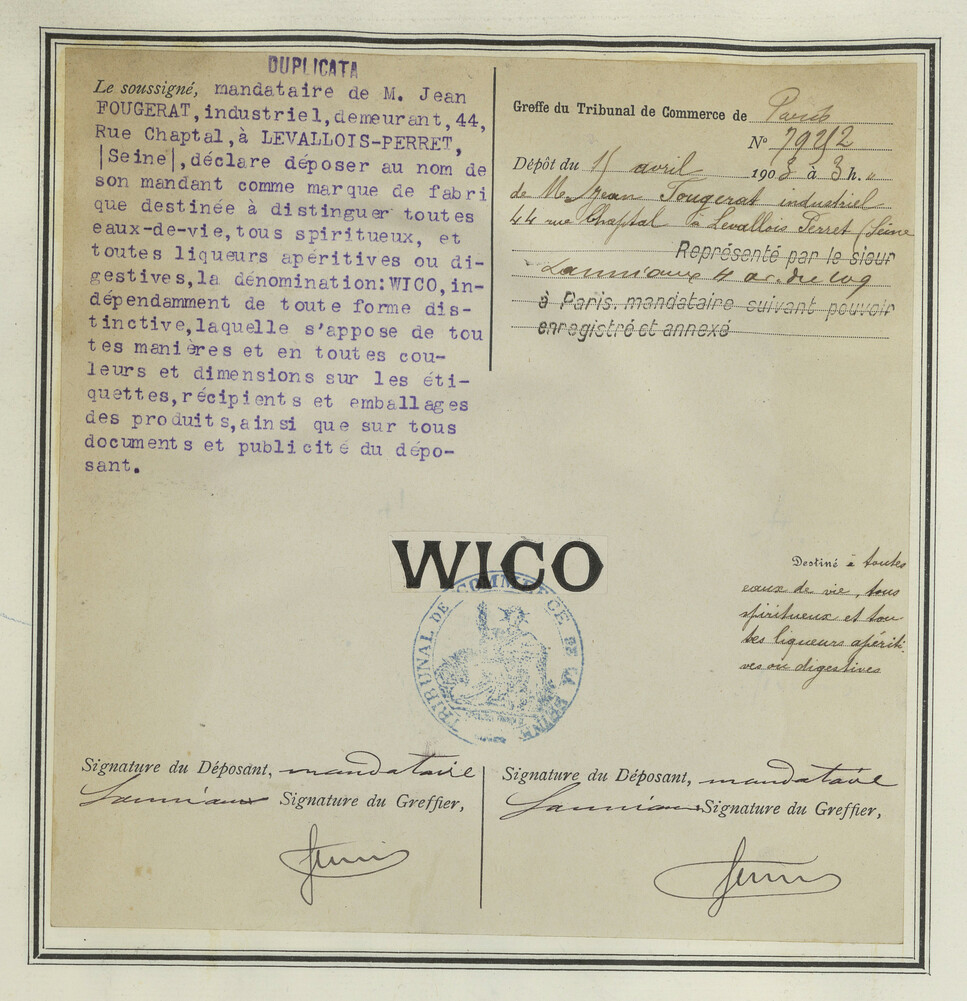 DUPLICATA
Le soussigné, mandataire de M. Jean
FOUGERAT, industriel, demeurant, 44,
Rue Chaptal, à LEVALLOIS-PERRET,
|Seine|, déclare déposer au nom de
son mandant comme marque de fabri
que destinée à distinguer toutes
eaux-de-vie, tous spiritueux, et
toutes liqueurs apéritives ou di-
gestives, la dénomination: WICO, in-
dépendamment de toute forme dis-
tinctive, laquelle s'appose de tou
tes manières et en toutes cou-
leurs et dimensions sur les éti-
quettes, récipients et emballages
des produits, ainsi que sur tous
documents et publicité du dépo-
sant.
Greffe du Tribunal de Commerce de Paris
N°
Dépôt du 15 avril 1903 à 3 h. "
de Mr Jean Fougerat industriel
44 rue Chaptal à Levallois Perret (Seine
Représenté par le sieur
Lanniaux 4 av. du coq
à Paris, mandataire suivant pouvoir
enregistré et annexé
WICO
TRIBUNAL DE COMMERCE DE LA SEINE
Destiné à toutes
eaux de vie, tous
spiritueux et tou
tes liqueurs apériti-
ves ou digestives
Signature du Déposant, mandataire
Lanniaux Signature du Greffier,
Signature du Déposant, mandataire
Lanniaux Signature du Greffier,